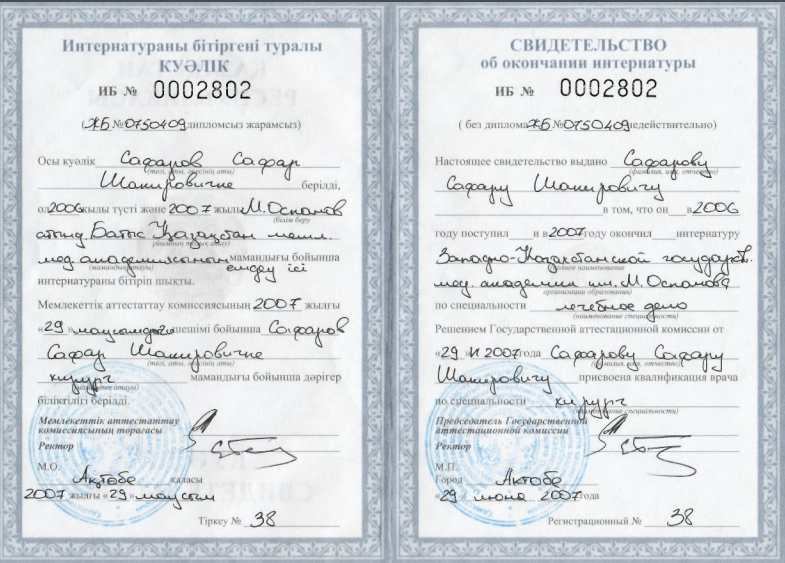 Интернатураны бітіргені туралы
КУӘЛІК
ИБ № 0002802
(ЖБ №0750409 дипломсыз жарамсыз)
Осы куәлік Сафаров Сафар
(тегі, аты, әкесінің аты)
Шакировичке берілді,
ол 2006 жылы түсті және 2007 жылы М.Оспанов
(білім беру
атынд. Батыс Қазақстан мемл.
ұйымының толық атауы)
мед. академиясының мамандығы бойынша
(мамандық атауы) емдеу ісі
интернатураны бітіріп шықты.
Мемлекеттік аттестаттау комиссиясының 2007 жылғы
«29» маусымдағы шешімі бойынша Сафаров
Сафар Шакировичке
(тегі, аты, әкесінің аты)
хирург мамандығы бойынша дәрігер
(мамандық атауы)
біліктілігі берілді.
Мемлекеттік аттестаттау
комиссиясының төрағасы
Ректор
М.О.
Ақтөбе қаласы
2007 жылғы «29» маусым
Тіркеу № 38
СВИДЕТЕЛЬСТВО
об окончании интернатуры
ИБ № 0002802
( без диплома ЖБ №0750409 недействительно)
Настоящее свидетельство выдано Сафарову
(фамилия, имя, отчество)
Сафару Шакировичу
в том, что он в 2006
году поступил и в 2007 году окончил интернатуру
Западно-Казахстанской государств.
полное наименование
мед. академии им. М. Оспанова
организации образования)
по специальности лечебное дело
(наименование специальности)
Решением Государственной аттестационной комиссии от
«29» 2007 года Сафарову Сафару
(фамилия, имя, отчество)
Шакировичу присвоена квалификация врача
по специальности хирург
(наименование специальности)
Председатель Государственной
аттестационной комиссии
Ректор
М.П.
Город Актобе
«29» июня 2007 года
Регистрационный № 38